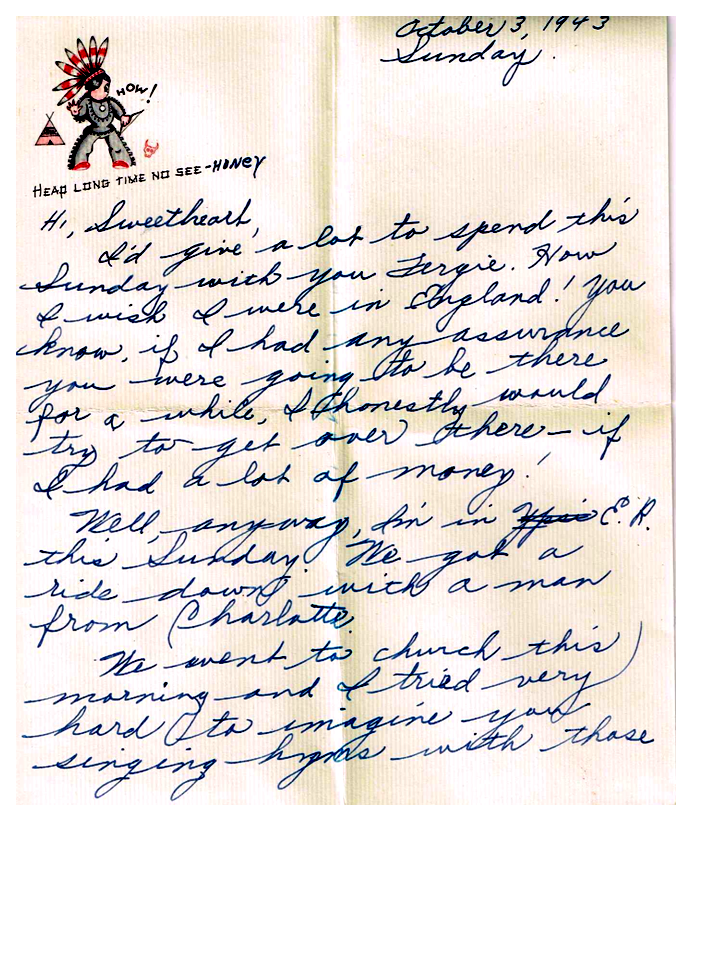 October 3, 1943
Sunday.
HOW!
HEAP LONG TIME NO SEE-HONEY
Hi, Sweetheart,
I'd give a lot to spend this
Sunday with you Fergie. How
I wish I were in England! You
know, if I had any assurance
you were going to be there
for a while, I honestly would
try to get over there - if
I had a lot of money!
Well, anyway, I'm in Ypsi E. R.
this Sunday. We got a
ride down with a man
from Charlotte.
We went to church this
morning and I tried very
hard to imagine you
singing hymns with those